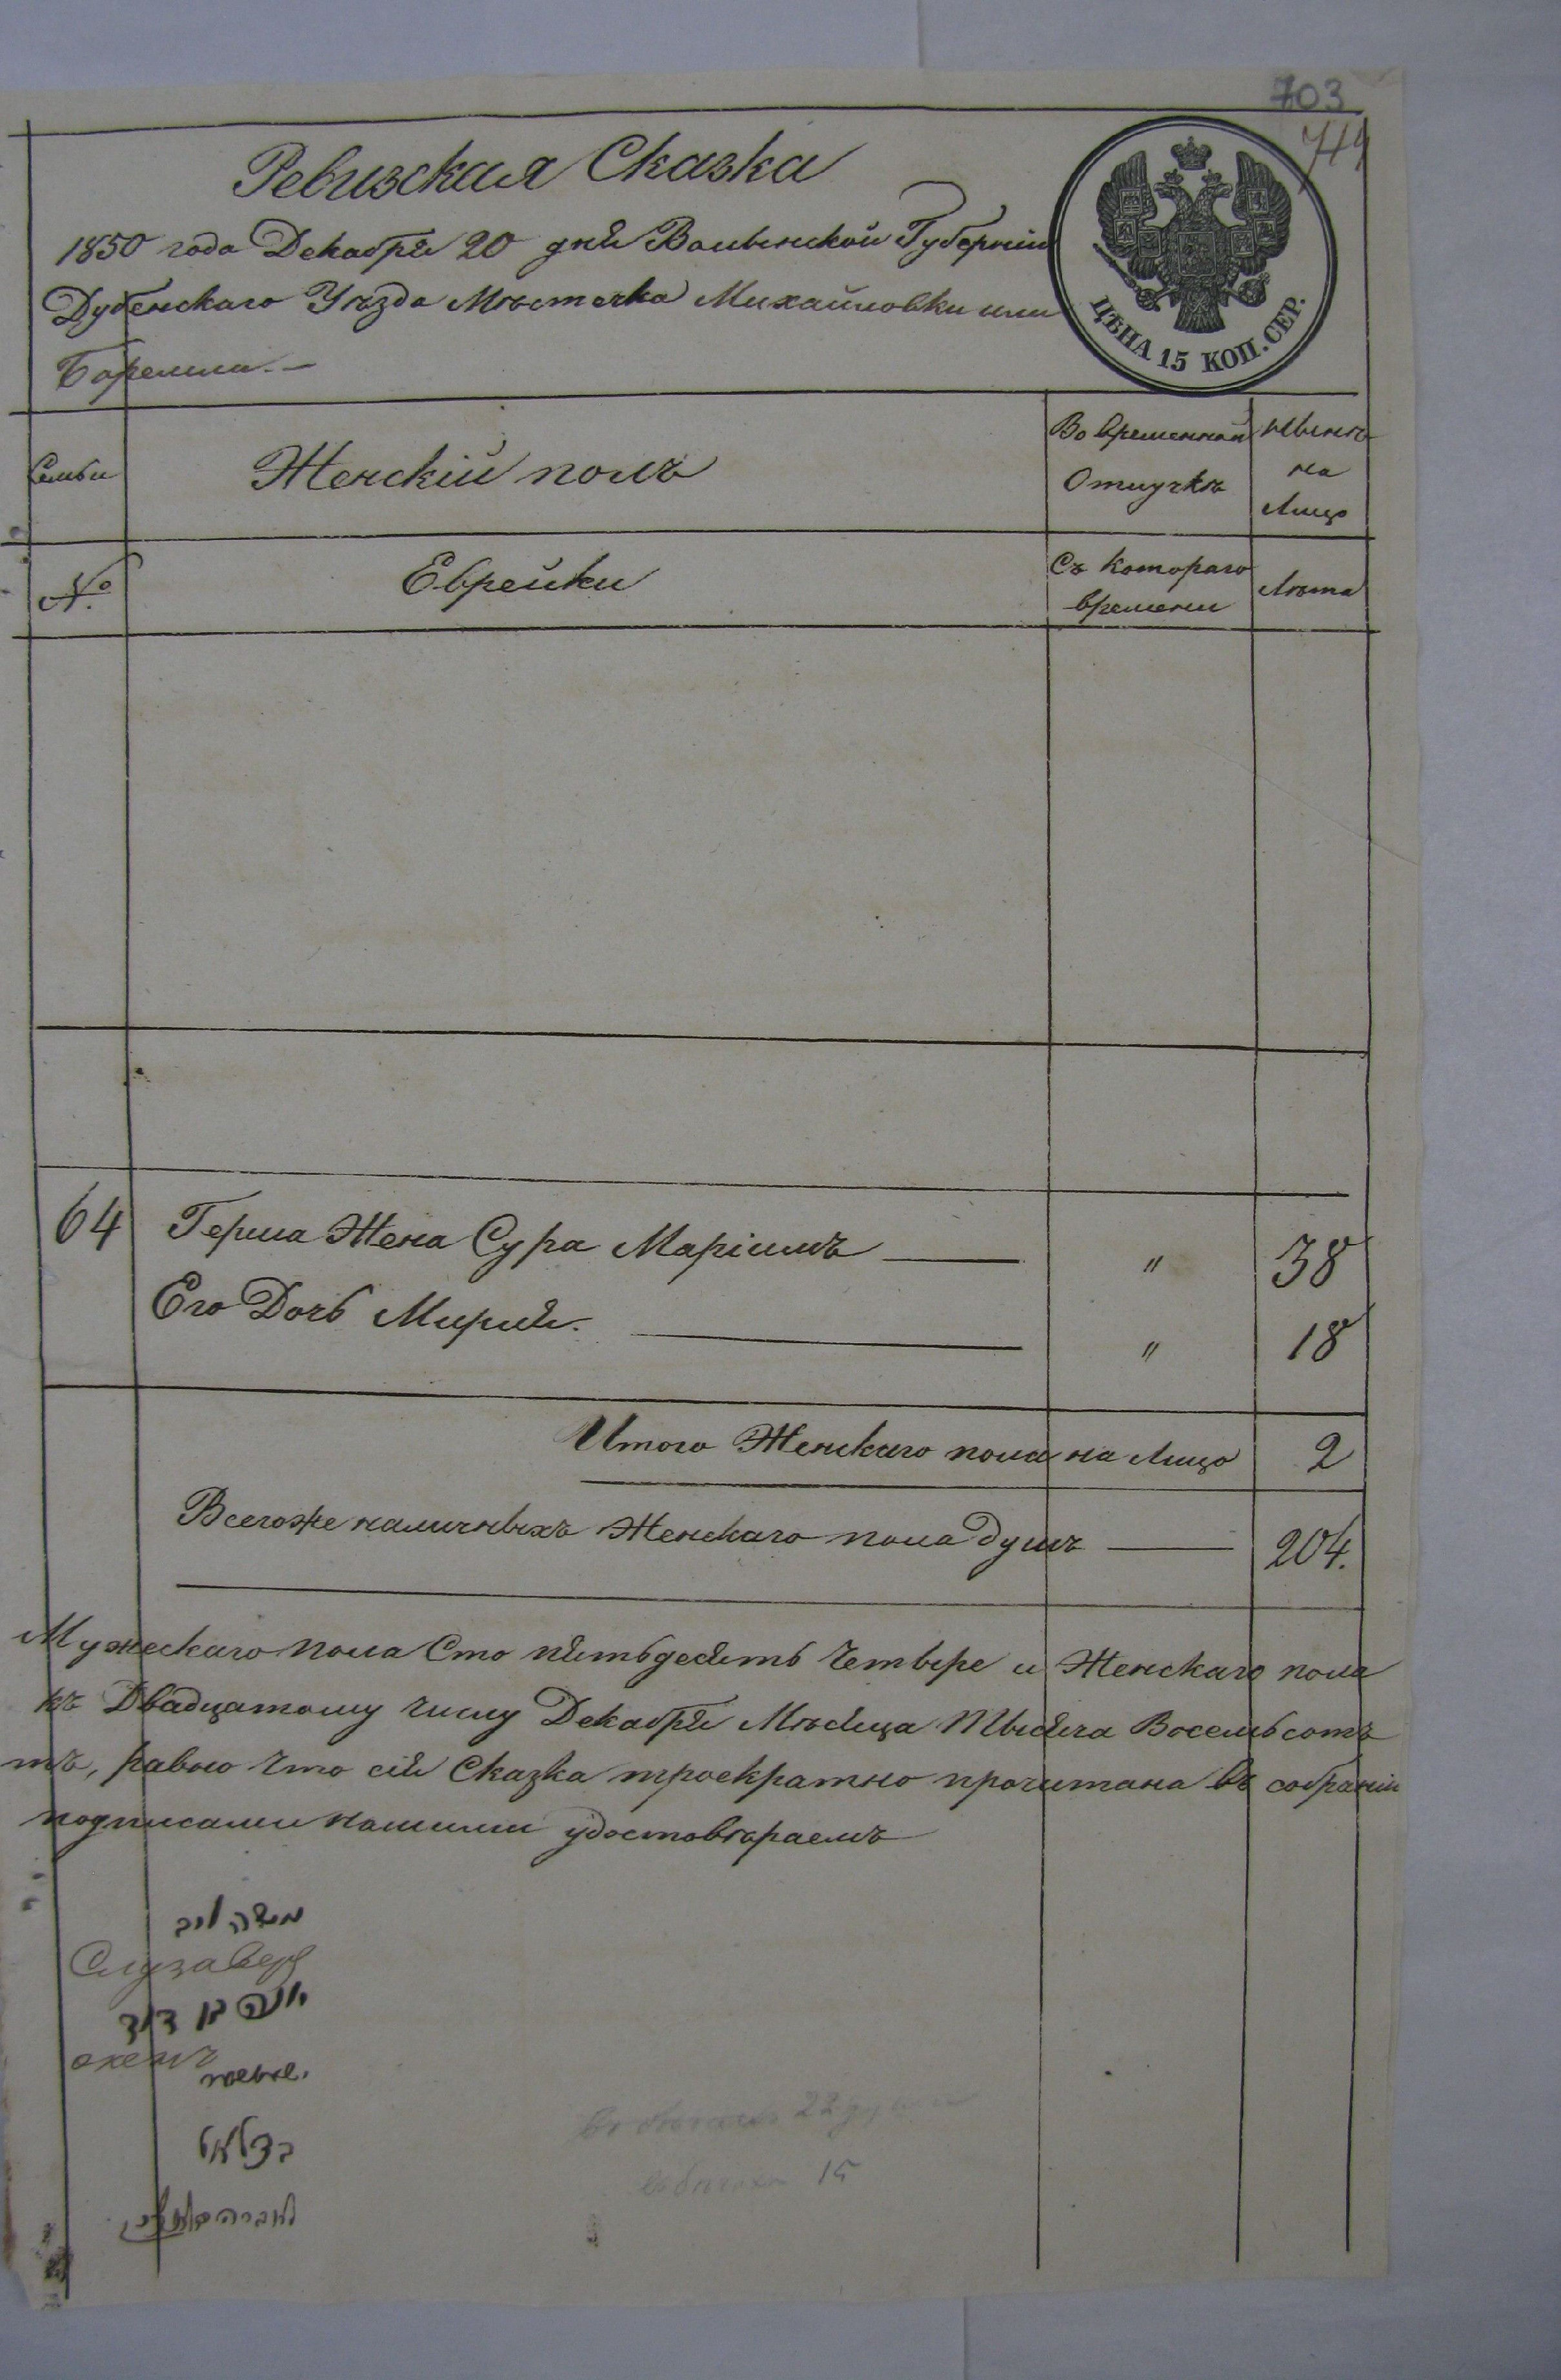 703
744
Ревизская Сказка
1850 года Декабря 20 дня Волынской Губерніи
Дубенскаго Уѣзда Мѣстечка Михайловки или
Боремля.—
ЦѢНА 15 КОП. СЕР.
Семьи
Женскій полъ
Во временной Отлучкѣ
Нынѣ на Лицо
№
Еврейки
Съ котораго времени
Лѣта
64 Герша Жена Сура Маріимъ — " 38
Его Дочь Мирля. — " 18
Итого Женскаго пола на Лицо 2
Всегоже наличныхъ Женскаго пола душъ — 204.
Мужескаго пола Сто пятьдесятъ Четыре и Женскаго пола
къ Двадцатому числу Декабря Мѣсяца Тысяча Восемьсотъ
тъ, равно что сія Сказка троекратно прочитана въ собраніи
подписами нашими удостовѣраемъ
משה ליב
יונה בן דוד
בצלאל
22
15